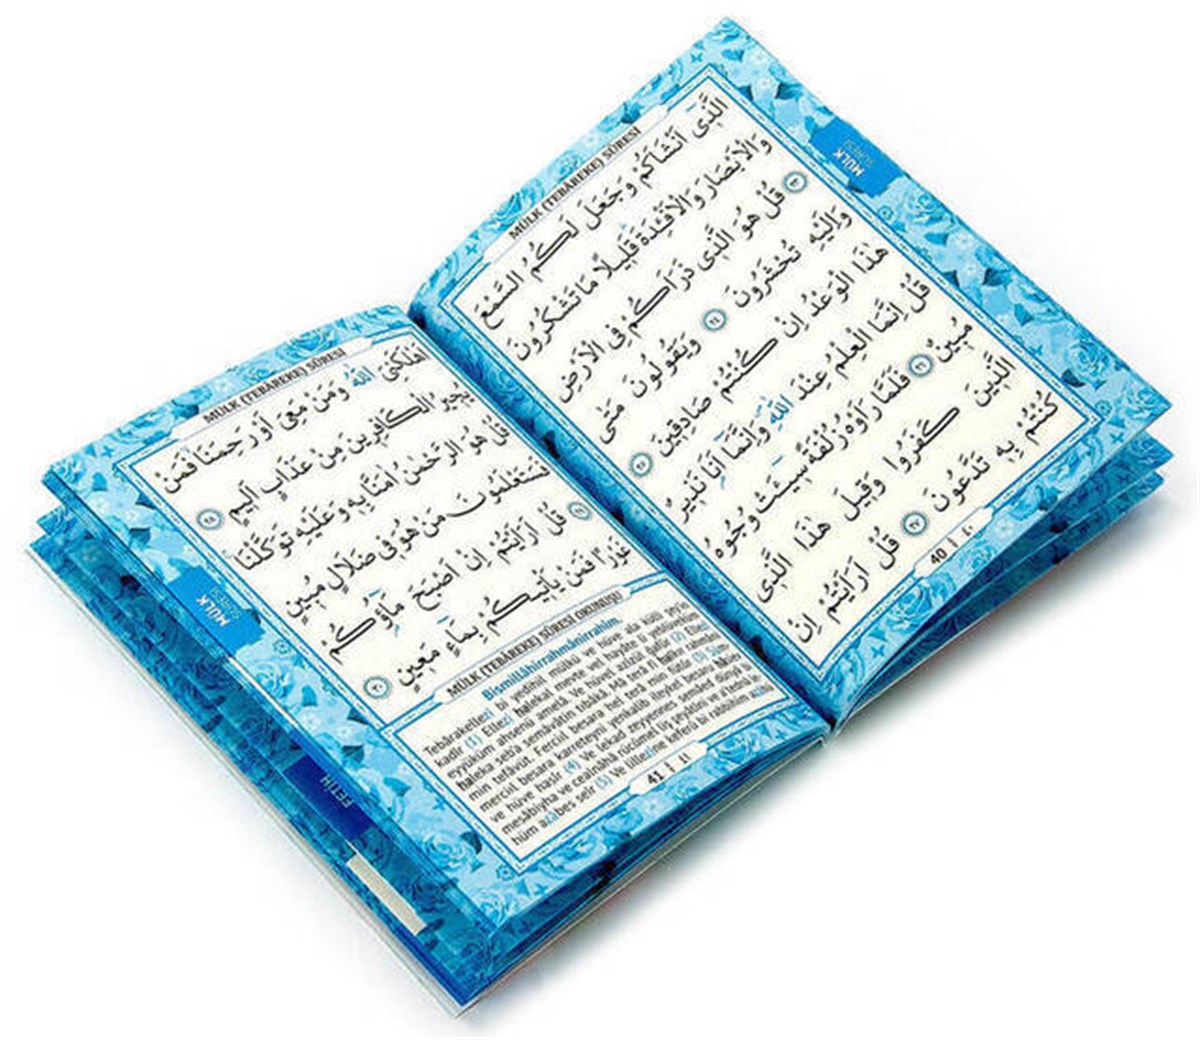 MÜLK (TEBÂREKE) SÛRESİ
MÜLK
SÛRESİ
الَّذِى اَنْشَاَكُمْ وَجَعَلَ لَكُمُ السَّمْعَ
وَالْاَبْصَارَ وَالْاَفْئِدَةَ قَلِيلًا مَا تَشْكُرُونَ
﴿٢٣﴾ قُلْ هُوَ الَّذِى ذَرَاَكُمْ فِى الْاَرْضِ
وَاِلَيْهِ تُحْشَرُونَ ﴿٢٤﴾ وَيَقُولُونَ مَتٰى
هٰذَا الْوَعْدُ اِنْ كُنْتُمْ صَادِقِينَ ﴿٢٥﴾
قُلْ اِنَّمَا الْعِلْمُ عِنْدَ اللّٰهِ وَاِنَّمَا اَنَا نَذِيرٌ
مُبِينٌ ﴿٢٦﴾ فَلَمَّا رَاَوْهُ زُلْفَةً سِيئَتْ وُجُوهُ
الَّذِينَ كَفَرُوا وَقِيلَ هٰذَا الَّذِى
كُنْتُمْ بِهِ تَدَّعُونَ ﴿٢٧﴾ قُلْ اَرَاَيْتُمْ اِنْ
40 ٤٠
MÜLK (TEBÂREKE) SÛRESİ
MÜLK
SÛRESİ
اَهْلَكَنِىَ اللّٰهُ وَمَنْ مَعِىَ اَوْ رَحِمَنَا فَمَنْ
يُجِيرُ الْكَافِرِينَ مِنْ عَذَابٍ اَلِيمٍ ﴿٢٨﴾
قُلْ هُوَ الرَّحْمٰنُ اٰمَنَّا بِهِ وَعَلَيْهِ تَوَكَّلْنَا
فَسَتَعْلَمُونَ مَنْ هُوَ فِى ضَلَالٍ مُبِينٍ
﴿٢٩﴾ قُلْ اَرَاَيْتُمْ اِنْ اَصْبَحَ مَاؤُكُمْ
غَوْرًا فَمَنْ يَاْتِيكُمْ بِمَاءٍ مَعِينٍ ﴿٣٠﴾
MÜLK (TEBÂREKE) SÛRESİ OKUNUŞU
Bismillâhirrahmânirrahîm.
Tebârakellezî bi yedihil mülkü ve hüve alâ külli şey'in
kadîr (1) Ellezî halekal mevte vel hayâte li yeblüveküm
eyyüküm ahsenü amelâ. Ve hüvel azîzül ğafûr (2) Ellezî
haleka seb'a semâvâtin tıbâkâ. Mâ terâ fî halkır rahmâni
min tefâvüt. Ferciıl besara hel terâ min fütûr (3) Süm
merciıl besara karreteyni yenkalib ileykel besaru hâsien
ve hüve hasîr (4) Ve lekad zeyyennes semâed dünyâ bi
mesâbîyha ve cealnâhâ rücûmel liş şeyâtîni ve a'tednâ le
hüm azâbes seîr (5) Ve lillezîne keferû bi rabbihim azâbü
41 ٤١
FETİH